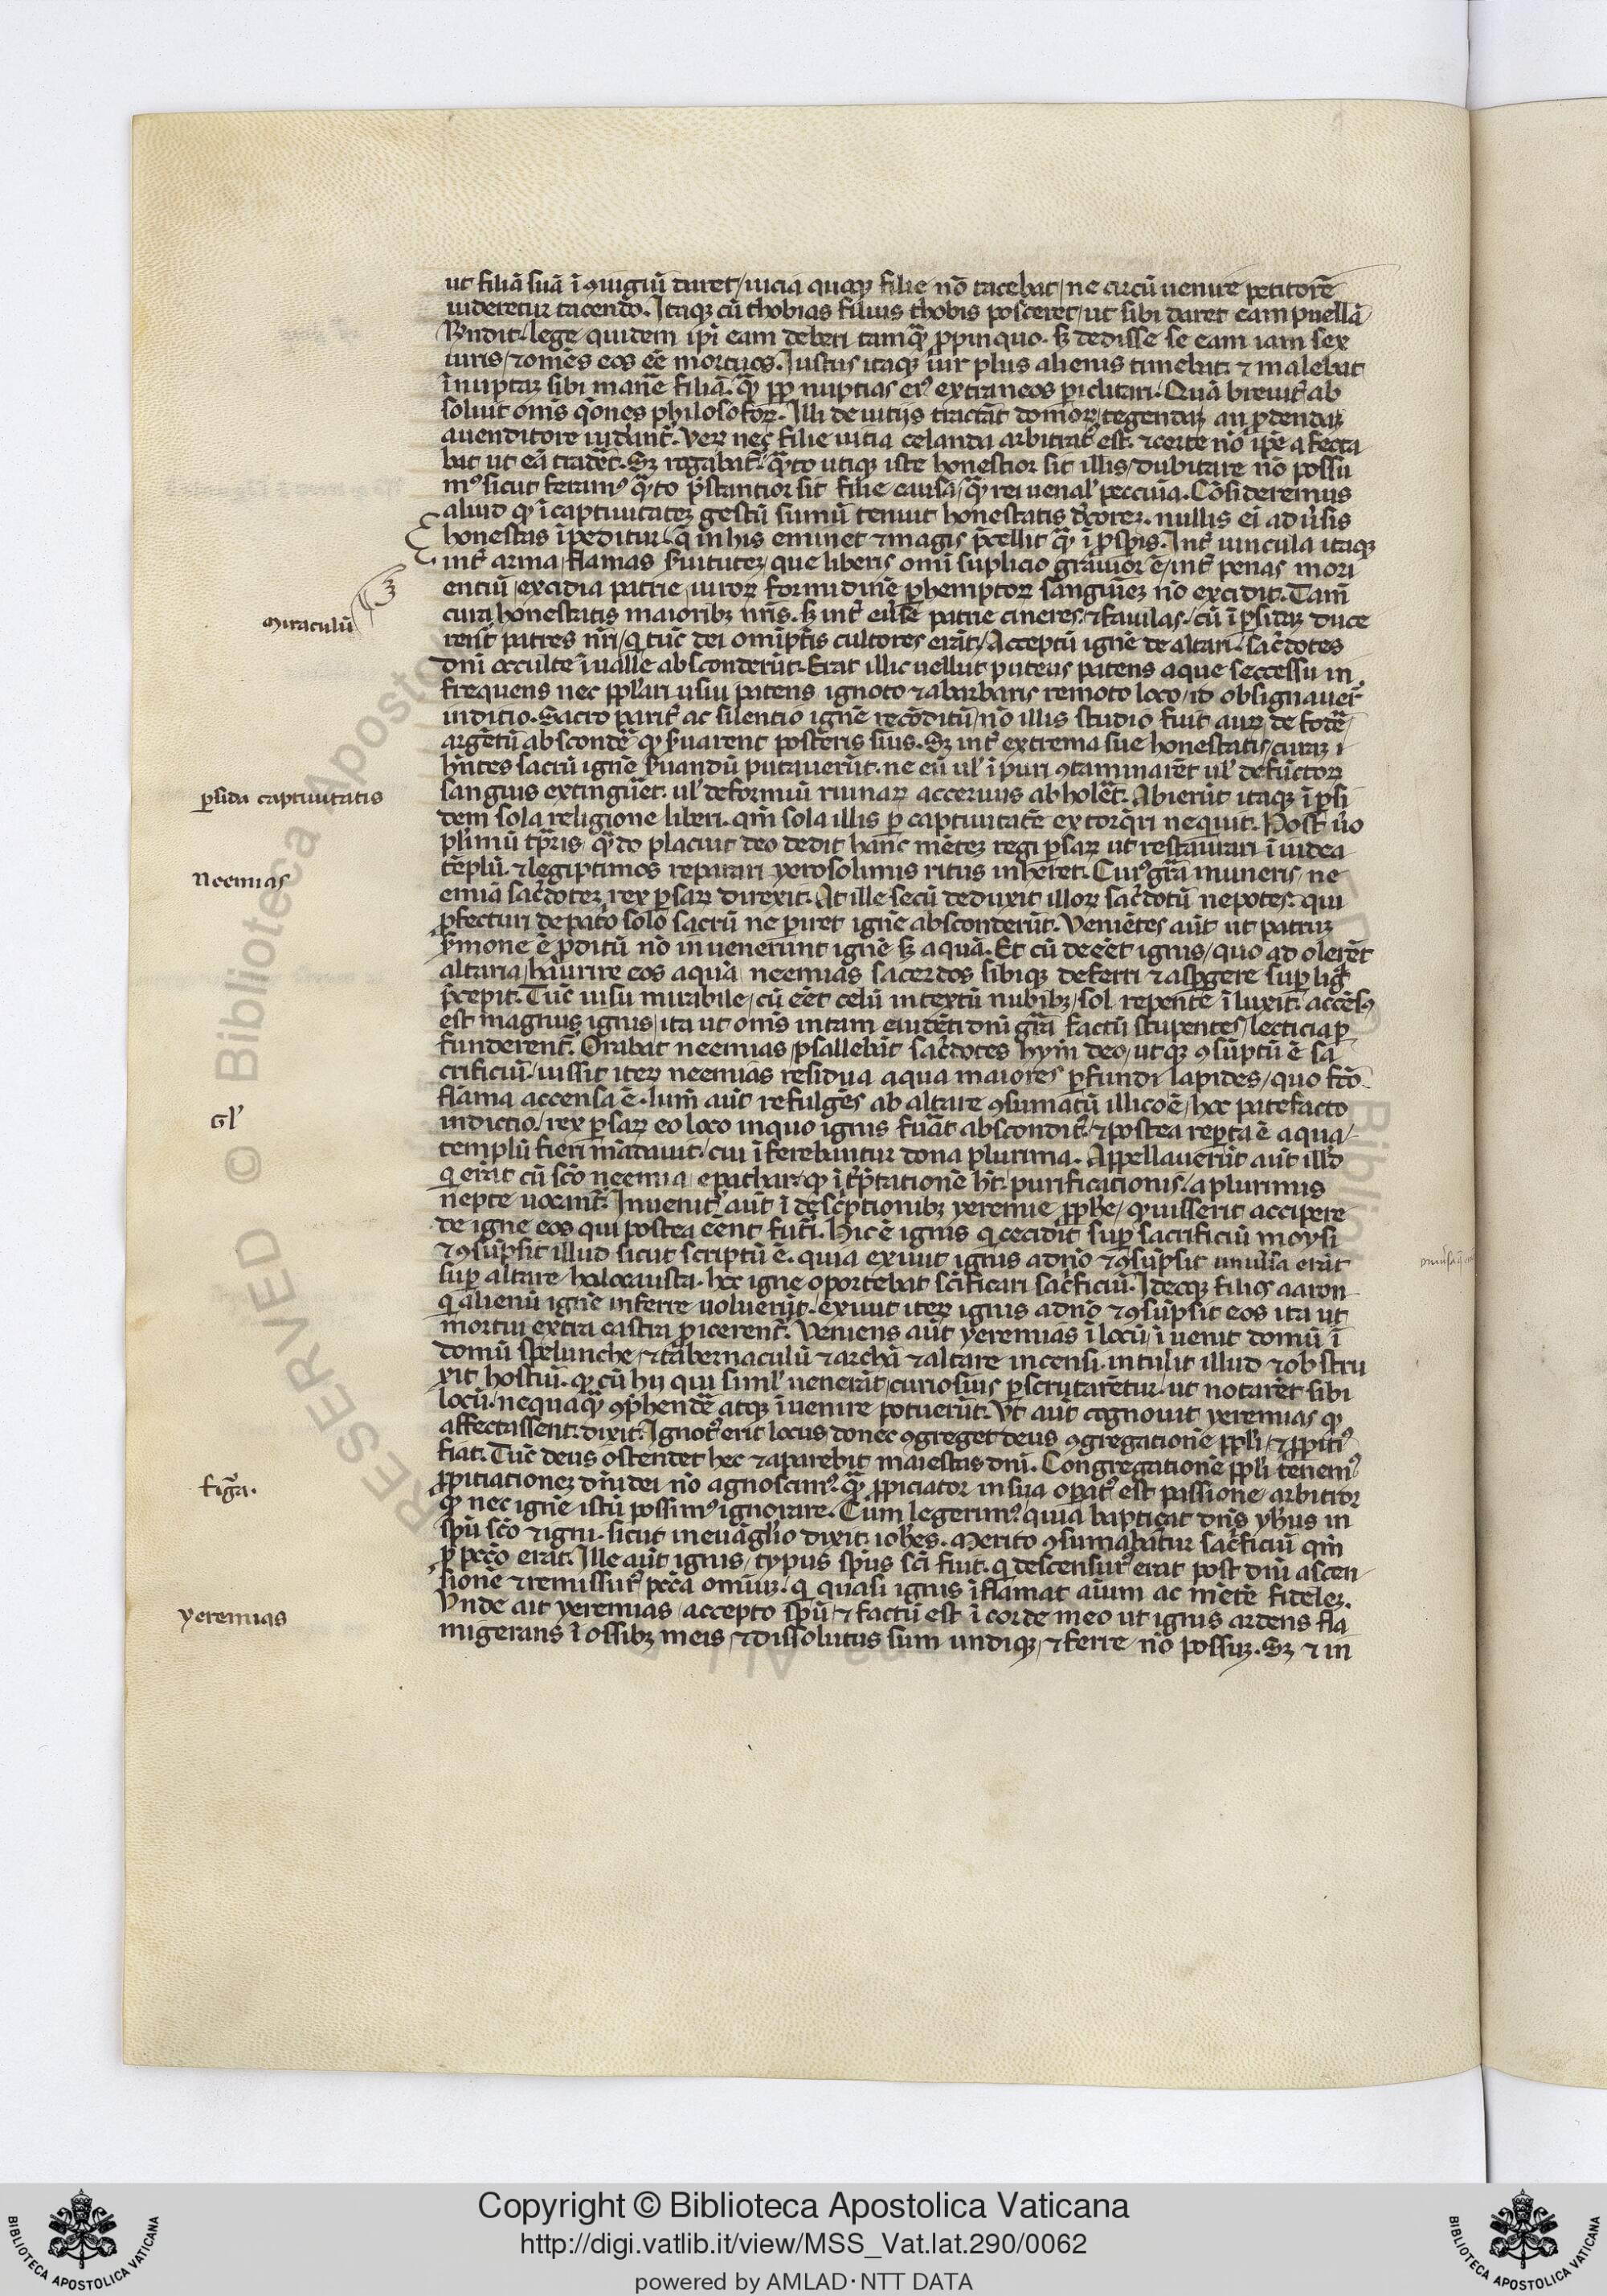 ut filiā suā ī ɔiugiū daret / uicia quoqꝫ filie nō tacebat / ne circū uenire petitorē
uideretur tacendo. Itaqꝫ cū thobias filius thobis posceret / ut sibi daret eam puellā
Rn̄dit / lege quidem ip̄i eam deberi tamqᷓꝫ ꝓpinquo. sꝫ dedisse se eam iam sex
uiris / ⁊ om̄es eos eē mortuos. Iustus itaqꝫ uir plus alienis timebat ⁊ malebat
īnuptaꝫ sibi manē filiā. qᷓꝫ ꝓp̄ nuptias eiꝰ extraneos piclitari. Quā breuit̄ ab
soluit om̄s q̄ones philosofoꝝ. Illi de uitijs tractāt domoꝝ / tegendaꝫ an ꝓdendaꝫ
auenditore iudant᷑. Veꝝ nec filie uitia celanda arbitrat᷑ est. ⁊ certe nō ip̄e affecta
bat ut eā tradēt. Sꝫ rogabat᷑. qᷓto utiqꝫ iste honestior sit illis / dubitare nō possu
mꝰ sicut feramꝰ qᷓto p̄stantior sit filie causa / qᷓꝫ rei uenal̓ peccuīa. Cōsideremus
aliud qꝫ ī captiuitateꝫ gestū sumū tenuit honestatis dc̄oreꝫ. nullis ei aduͥsis
honestas īpeditur / q̄ in his eminet ⁊ magis p̄cellit qᷓꝫ ī ꝓsꝑis. Int̄ uincula itaqꝫ
int̄ arma / flamas / ẜuituteꝫ / que liberis omī suplicio grauior ē / int̄ penas mori
entiū / excidia patrie / uiuoꝝ formidinē ꝑhemptoꝝ sanguineꝫ nō excidit. Tam̄
cura honestatis maioribꝫ nr̄is. sꝫ int̄ euͥse patrie cineres ⁊ fauilas / cū ī ꝑsideꝫ duce
rent᷑ patres nr̄i / q̄ tūc dei omīpt̄is cultores erāt / Acceptū ignē de altari. sac̄dotes
dn̄i occulte ī ualle absconderūt. Erat illic uellut puteus patens aque seccessu in
frequens nec ppl̓ari usui patens ignoto ⁊ abarbaris remoto loco / ıd obsignauer̄
inditio. Sacro parit̄ ac silentio ignē recōditū / nō illis studio fuit auꝝ defodē /
argētū abscondē qꝫ ẜuarent posteris suis. Sꝫ int̄ extrema sue honestatis / curaꝫ i
hn̄tes sacrū ignē ẜuandū putauerūt. ne eū ul̓ īpuri ɔtaminarēt ul̓ defūctoꝝ
sanguis extinguēt. ul̓ deformiū ruinaꝝ acceruus abholēt. Abierūt itaqꝫ ī ꝑsi
dem sola religione liberi. qm̄ sola illis ꝑ captiuitatē extorq̄ri nequit. Post uͦo
pl̓imū tp̄ris / qᷓdo placuit deo dedit hanc mēteꝫ regi ꝑsaꝝ ut restaurari ī iudea
tēplū. ⁊ legiptimos reparari yerosolimis ritus inhēret. Cuiꝰ gr̄a muneris ne
emiā sac̄doteꝫ rex ꝑsaꝝ direxit. At ille secū deduxit illoꝝ sac̄dotū nepotes. qui
ꝓfecturi de pat̄o solo sacrū ne ꝑiret ignē absconderūt. Veniētes aūt ut patruꝫ
ẜmone ē ꝓditū nō inuenerunt ignē sꝫ aquā. Et cū deeēt ignis / quo adolerēt
altaria / haurire eos aquā neemias sacerdos sibiqꝫ deferri ⁊ asꝑgere suꝑ liḡ
p̄cepit. Tūc uisu mirabile / cū eēt celū intextū nubibꝫ / sol repente īluxit. accēsꝰ
est magnus ignis / ita ut om̄s intam euidēti dn̄i gr̄a factū stupentes / lecticia ꝑ
funderent᷑. Orabat neemias / psallebāt sac̄dotes hym̄ deo / utqꝫ ɔsūptū ē sa
crificiū. iussit iteꝝ neemias residua aqua maiores ꝑfundi lapides / quo fc̄o
flāma accensa ē. lum̄ aūt refulgēs ab altare ɔsumatū illico ē / hoc patefacto
indictio / rex ꝑsaꝝ eo loco inquo ignis fuat̄ abscondit᷑. ⁊ postea reꝑta ē aqua /
templū fieri mādauit / cui īferebantur dona plurima. Appellauerūt aūt ill̓d
q̄ erāt cū sc̄o neemia / epathar. qꝫ īt̄ p̄tationē hꝫ purificationis / a plurimis
nepte uocant᷑. Inuenit᷑ aūt ī desc̄ptionibꝫ yeremie ꝓph̄e / qꝫ iusserit accipere
de igne eos qui postea eēnt fut̄i. Hic ē ignis q̄ cecidit suꝑ sacrificiū moysi
⁊ ɔsūpsit illud sicut scriptū ē. quia exiuit ignis adn̄o ⁊ ɔsūpsit uniuͥsa erāt
suꝑ altare / holocausta. hoc igne oportebat sc̄ificari sac̄ficiū. Ideoqꝫ filiꝰ aaron
q̄ alienū ignē inferre uoluerūt. exiuit iteꝝ ignis adn̄o ⁊ ɔsūpsit eos ita ut
mortui extra castra ꝓicerent᷑. Veniens aūt yeremias ī locū / īuenit domū ī
domū spelunche / ⁊ tabernaculū ⁊ archā ⁊ altare incensi. intulit illud ⁊ obstru
xit hostiū. qꝫ cū hij qui siml̓ uenerāt / curiosius ꝑscrutarētur ut notarēt sibi
locū. nequaqᷓꝫ ɔp̄hendē atqꝫ īuenire potuerūt. Vt aūt cognouit yeremias qꝫ
affectassent. dixit. Ignotꝰ erit locus donec ɔgreget deus ɔgregationē ppl̓i / ⁊ ꝓpitiꝰ
fiat. Tūc deus ostendet hec ⁊ aparebit maiestas dn̄i. Congregationē ppl̓i tenemꝰ
ꝓpitiationeꝫ dn̄i dei nō agnoscimꝰ. qᷓꝫ ꝓpiciator in sua oꝑat᷑ est passione / arbitror
qꝫ nec ignē istū possimꝰ ignorare. Cum legerimꝰ / quia baptiçat dn̄s yh̄us in
sp̄u sc̄o ⁊ igni. sicut in euāgl̓io dixit ioh̄es. Merito ɔsumabatur sac̄ficiū qm̄
ꝑ pccō erat. Ille aūt ignis / typus sp̄us sc̄i fuit. q̄ descensurꝰ erat post dn̄i ascen
sionē ⁊ remissurꝰ pccā omiūꝫ. q̄ quasi ignis īflamat aīum ac mētē fideleꝫ.
Vnde ait yeremias / accepto sp̄u / ⁊ factū est ī corde meo ut ignis ardens fla
migerans ī ossibꝫ meis / ⁊ dissolutus sum undiqꝫ / ⁊ ferre nō possuꝫ. Sꝫ ⁊ in
Miraculū
ꝑsida captiuitatis
Neemias
Gl̓
figᷓa.
yeremias
© Biblioteca Apostolica Vaticana ALL RIGHTS RESERVED
Copyright © Biblioteca Apostolica Vaticana
http://digi.vatlib.it/view/MSS_Vat.lat.290/0062
powered by AMLAD·NTT DATA
BIBLIOTECA APOSTOLICA VATICANA
BIBLIOTECA APOSTOLICA VATICANA